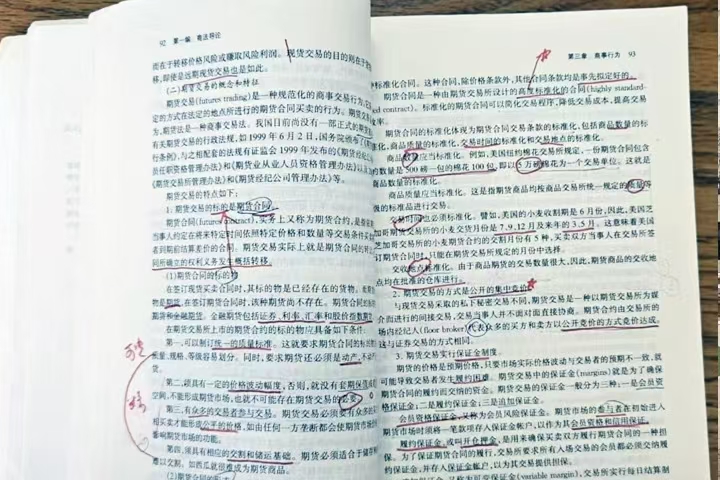 92 第一编 商法导论
而在于转移价格风险或赚取风险利润。现货交易的目的则在于
移,即使是远期现货交易也是如此。
(二)期货交易的概念和特征
期货交易(futures trading)是一种规范化的商事交易行为,
定的方式在法定的地点所进行的期货合同买卖的行为。期货交易
为,期货法是一种商事交易法。我国目前尚没有一部正式的期货
有关期货交易的行政法规,如 1999 年 6 月 2 日,国务院
行条例》,与之相配套的法规有证监会 1999 年发布的《期货经纪
员任职资格管理办法》和《期货业从业人员资格管理办法》以
《期货交易所管理办法》和《期货经纪公司管理办法》等。
期货交易的特点如下:
1. 期货交易的标的是期货合同。
期货合同(futures contract),实务上又称为期货合约,是
当事人约定在将来特定时间依照特定价格和数量等交易条件
者到期前结算差价的合同。期货交易实际上就是期货合同的
同所确立的权利义务发生概括转移。
(1)期货合同的标的物
在签订现货买卖合同时,其标的物是已经存在的货物。
物是期货,在签订期货合同时,该种期货尚不存在。期货合同的
期货和金融期货。金融期货包括证券、利率、汇率和股价指数期
在期货交易所上市的期货合约的标的物应具备如下条件:
第一,可以制订统一的质量标准。这就要求期货合同的标的
质量、规格、等级容易划分。同时,要求期货还必须是动产,不
货。
第二,须具有一定的价格波动幅度,否则,就没有套期保值
空间,不能形成期货市场,也就不可能存在期货交易的必要。
第三,有众多的交易者参与交易。期货交易必须要有众多的
相买卖才能形成公平的价格,如由任何一方垄断都会使期货市场
影响期货市场的功能。
第四,须具有相应的交割和储运基础。期货必须适合于储存
难以交割。如西瓜就很难成为期货商品。
(2)期货合同的
第三章 商事行为 93
标准化合同。这种合同,除价格条款外,其他合同条款均是事先拟定好的。
期货合同是一种由期货交易所设计的高度标准化的合同(highly standard-
ed contract)。标准化的期货合同可以简化交易程序,降低交易成本,提高交易
效率。
期货合同的标准化体现为期货合同交易条款的标准化,包括商品数量的标
准化、商品质量的标准化、交易时间的标准化和交易地点的标准化。
商品数量应当标准化。例如,美国纽约棉花交易所规定,一份期货合同包含
的数量是 500 磅一包的棉花 100 包,即以 5 万磅棉花为一个交易单位。这就是
商品数量的标准化。
商品质量应当标准化。这是指期货商品均按商品交易所统一规定的质量等
级的标准品进行交易。
交易时间也必须标准化。譬如,美国的小麦收割期是 6 月份,因此,美国芝
加哥期货交易所的小麦交货月份是 7、9、12 月及来年的 3、5 月。这意味着美国
芝加哥交易所的小麦期货合约的交割月份有 5 种,买卖双方当事人在交易所签
订期货合同时,只能在期货交易所规定的月份中选择。
交收地点标准化。由于商品期货的交易数量很大,因此,期货商品的交收地
点均在批准的仓库进行。
2. 期货交易的方式是公开的集中竞价
与现货交易采取的私下秘密交易不同,期货交易是一种以期货交易所为媒
介而进行的间接交易,交易当事人并不面对面直接协商。期货合约由交易所的
场内经纪人(floor broker)代表众多的买方和卖方以公开竞价的方式竞价达成。
这与证券交易的方式相同。
3. 期货交易实行保证金制度。
期货的价格是预期价格,只要市场实际价格波动与交易者的预期不一致,就
可能导致交易者发生履约困难。期货交易中的保证金(margins)就是为了确保
期货合同的履约而交纳的资金。期货交易中的保证金一般分为三种:一是会员资
格保证金;二是履约保证金;三是追加保证金。
会员资格保证金,又称为会员风险保证金。期货市场的参与者在初始进入
期货市场时须将一笔款项存入保证金帐户,以作为其会员资格和信用保证。
履约保证金,或叫开仓押金,是用来确保买卖双方履行期货合同的一种担
保。为了保证期货合同的履行,交易所要求所有入场交易的会员都必须交纳履
约保证金,并存入保证金帐户,以为其交易提供担保。
(variable margin),交易所实行每日结算制